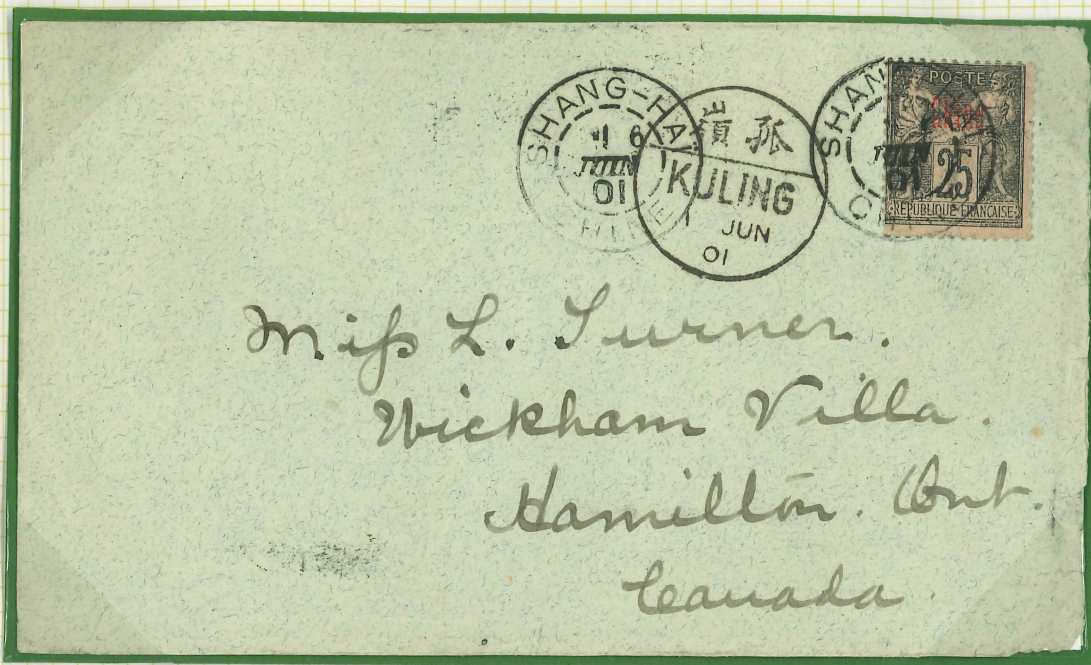 SHANG-HAI
6
JUIN
01
CHINE
嶺孤
KULING
1 JUN
01
SHAN
JUIN
01
POSTE
25
REPUBLIQUE FRANCAISE
Miss L. Turner.
Wickham Villa.
Hamilton. Ont.
Canada